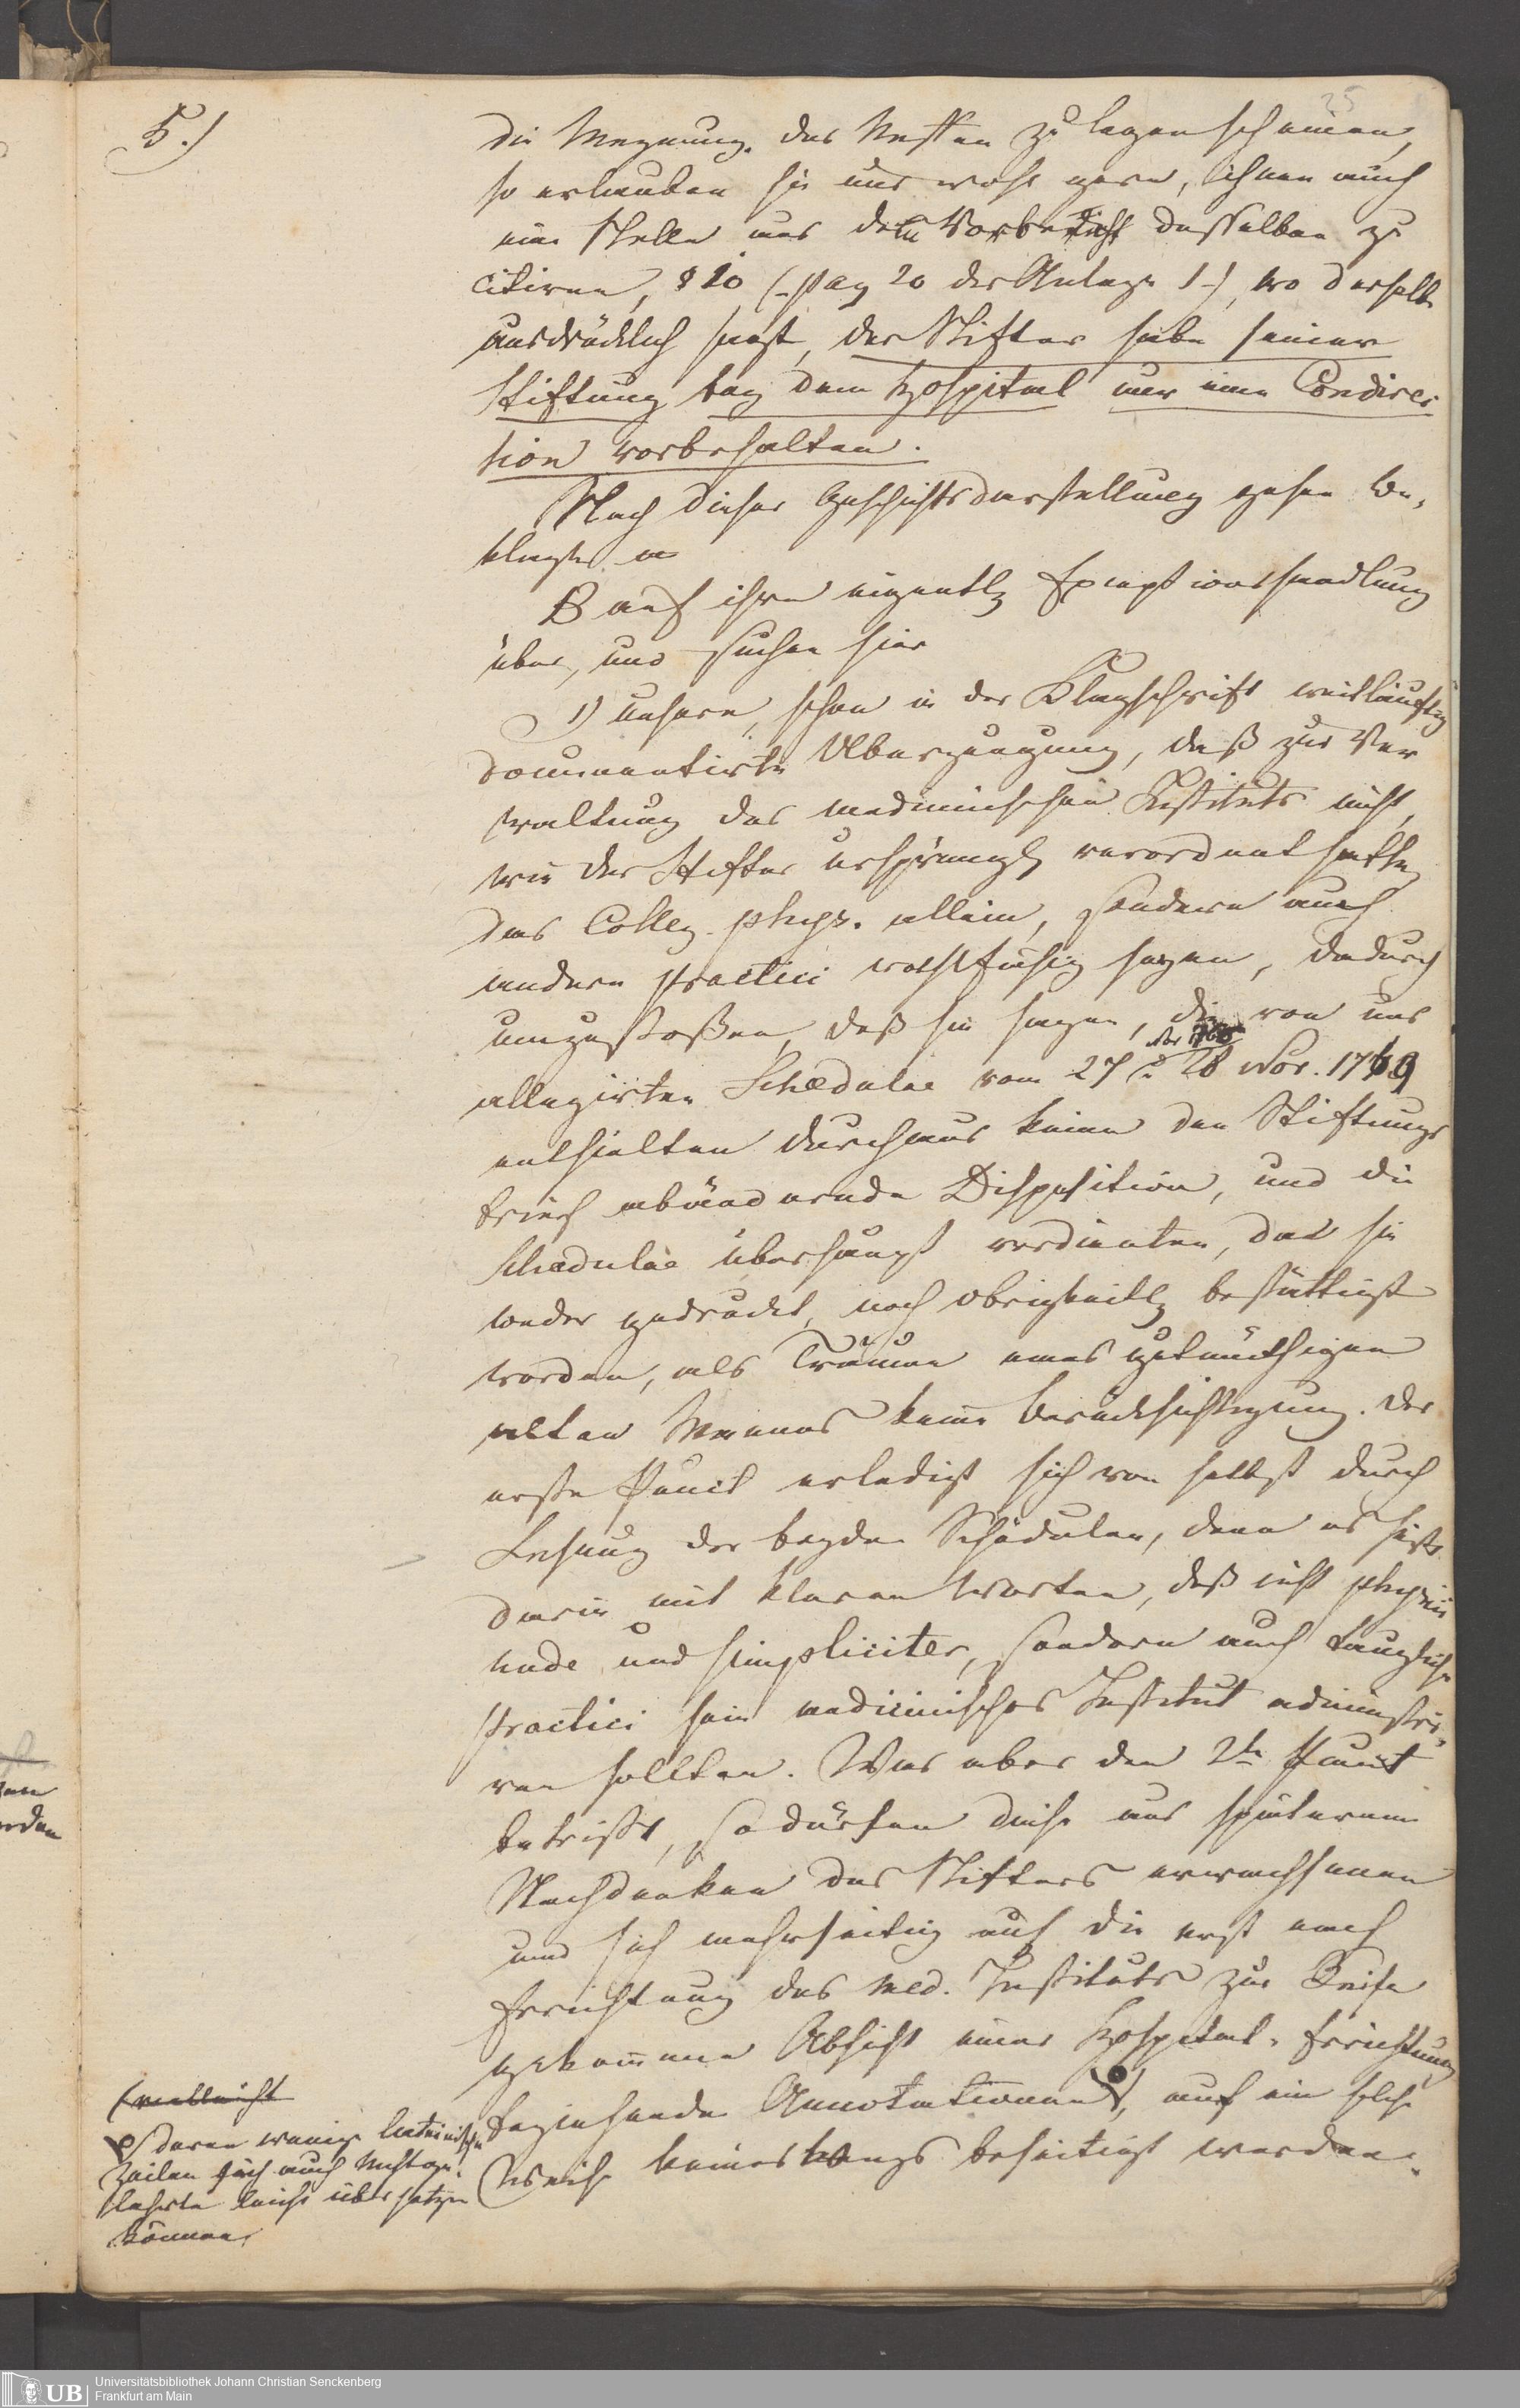 5.)
25
die Meynung des Neffen zu legen scheinen,
so erlauben sie uns wohl gern, ihnen auch
eine Stelle aus dem Vorbericht desselben zu
citiren, § 10 (pag 20 der Anlage 1), wo derselbe
ausdrücklich sagt, der Stifter habe seiner
Stiftung bey dem Hospital nur eine Condirec-
tion vorbehalten.
Nach dieser Geschichtsdarstellung gehen Be-
klagte
B auf ihre eigentl. Exceptionshandlung
über, und suchen hier
1) unsere, schon in der Klagschrift weitläuftig
documentirte Überzeugung, daß zur Ver
waltung des medicinischen Instituts nicht,
wie der Stifter ursprüngl. verordnet hatte,
das Colleg. phys. allein, sondern auch
andere practici wahlfähig seyen, dadurch
umzustoßen, daß sie sagen, die von uns
allegirten Schedulae vom 27 Nov 1765 u. 28 Nov. 1769
enthielten durchaus keine den Stiftungs
brief abändernde Disposition, und die
Schedulae überhaupt verdienten, da sie
weder gedruckt, noch obrigkeitl. bestättigt
worden, als Träume eines gutmüthigen
alten Mannes keine Berücksichtigung. Der
erste Punct erledigt sich von selbst durch
Lesung der beyden Schedulen, denn es heißt
darin mit klaren Worten, daß nicht physici
nude und simpliciter, sondern auch taugliche
practici sein medicinisches Institut administri-
ren sollten. Was aber den 2ten Punct
betrifft, so dürfen diese aus späterem
Nachdenken des Stifters erwachsenen
und sich mehrseitig auf die erst nach
Errichtung des med. Instituts zur Reife
gekommene Absicht einer Hospital-Errichtung
beziehende Annotationen, auf eine solche
Weise keineswegs beseitigt werden.
(vielleicht
deren wenige lateinische
Zeilen sich auch Nichtge-
lehrte leicht übersetzen
können
Universitätsbibliothek Johann Christian Senckenberg
Frankfurt am Main
UB